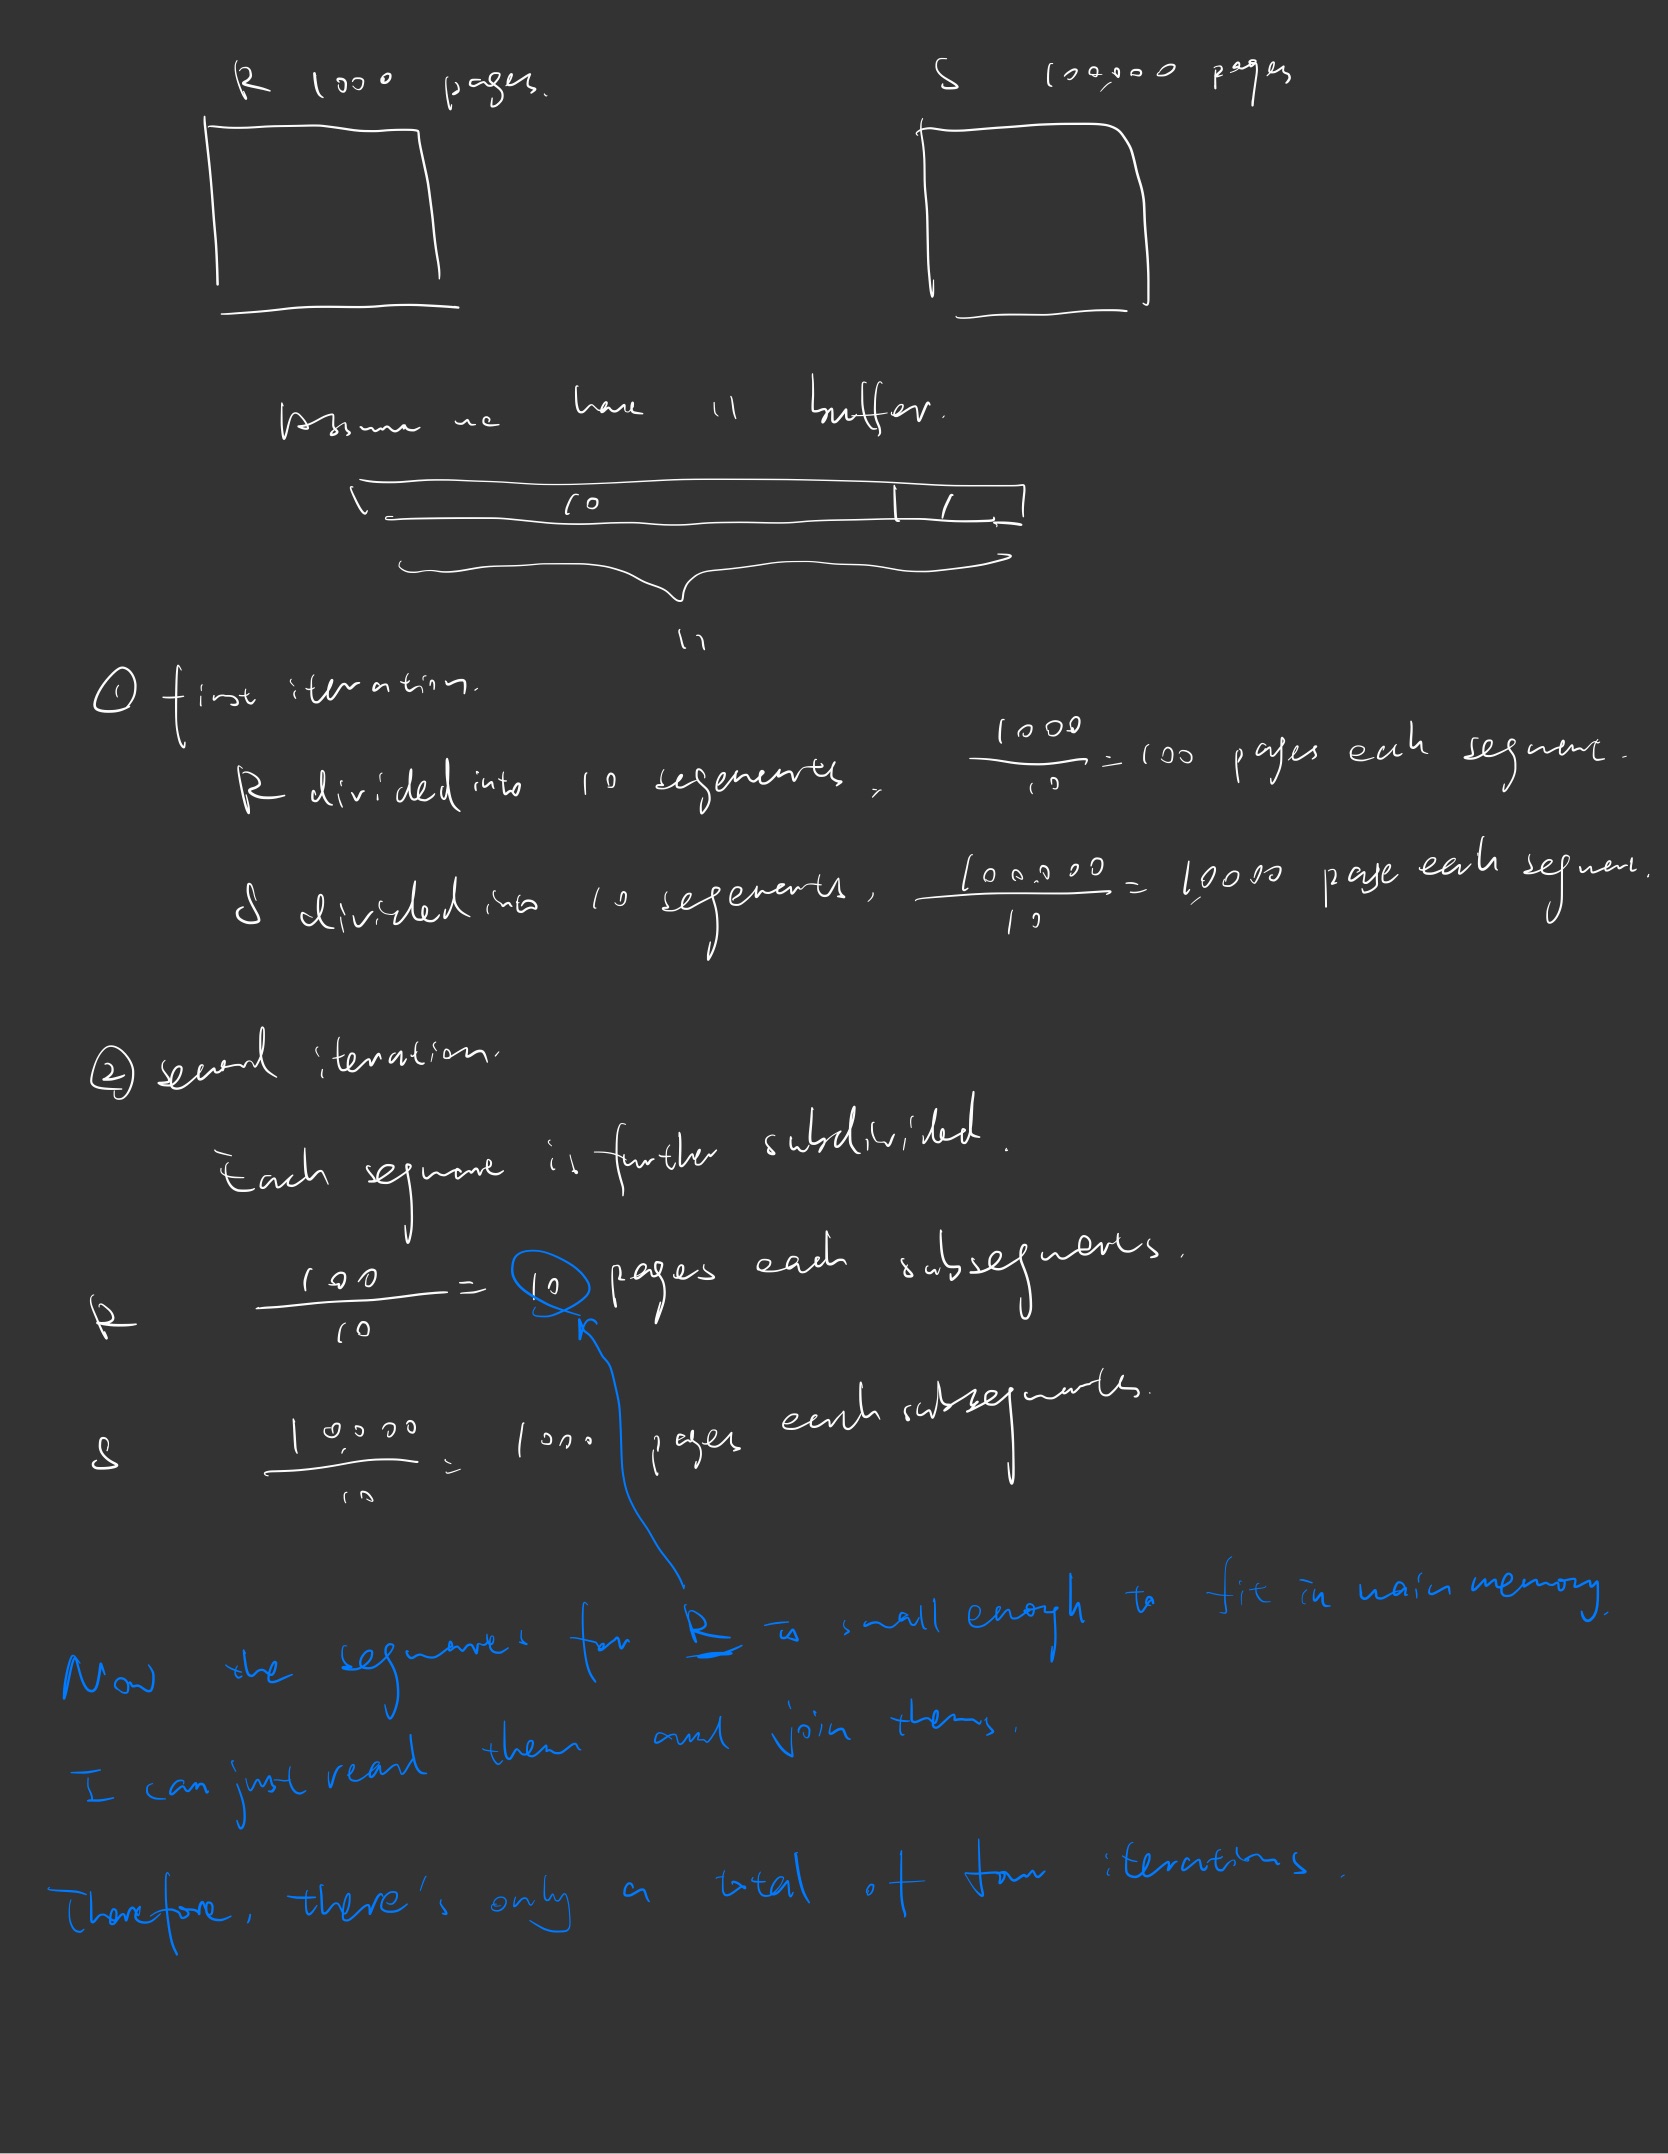 R 1000 pages.
S 100,000 pages
Assume we have 11 buffer.
10 1
11
① first iteration.
R divided into 10 segements, 1000/10 = 100 pages each segment.
S divided into 10 segements, 100,000/10 = 10,000 page each segment.
② second iteration.
Each segment is further subdivided.
R 100/10 = 10 pages each subsegments.
S 10,000/10 = 1000 pages each subsegments.
Now the segments for R is small enough to fit in main memory.
I can just read them and join thems.
Therefore, there's only a total of four iterations.